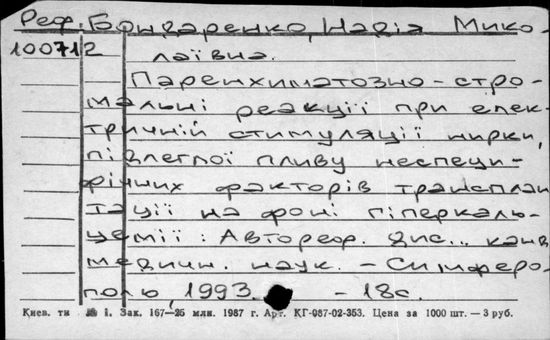 Реф. Бондаренко, Надія Мико-
100712 лаївна.
Паренхиматозно-стро-
мальні реакції при елек-
тричній стимуляції нирки,
підлеглої пливу неспеци-
фічних факторів трансплан
тації на фоні гіперкаль-
цемії: Автореф. дис... канд
медичн. наук. - Симферо-
поль, 1993. - 18с.
Києв. ти № 1. Зак. 167—25 млн. 1987 г. Арт. КГ-087-02-353. Цена за 1000 шт. — 3 руб.